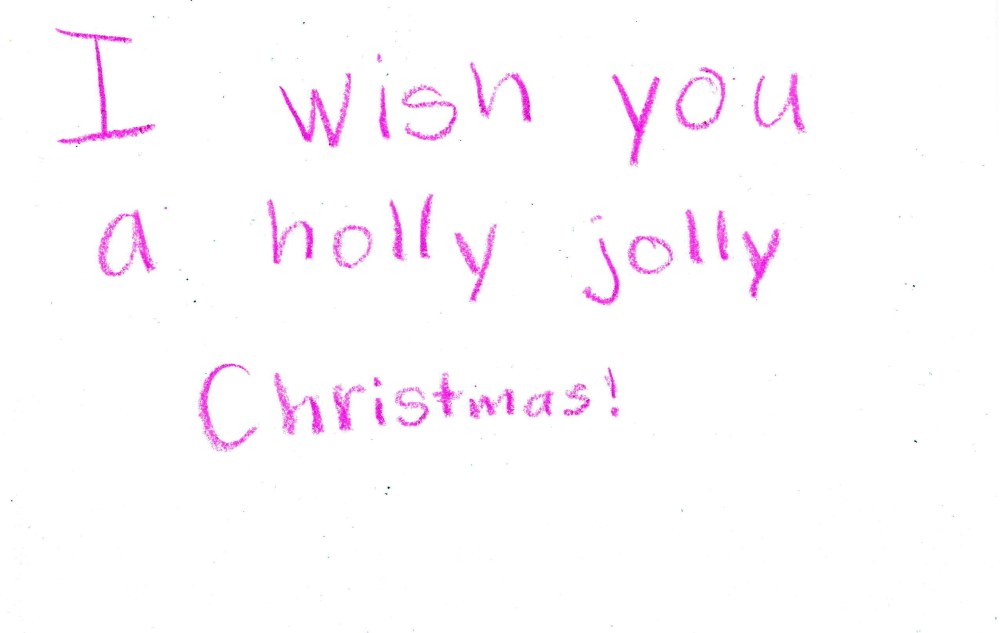 I wish you
a holly jolly
Christmas!